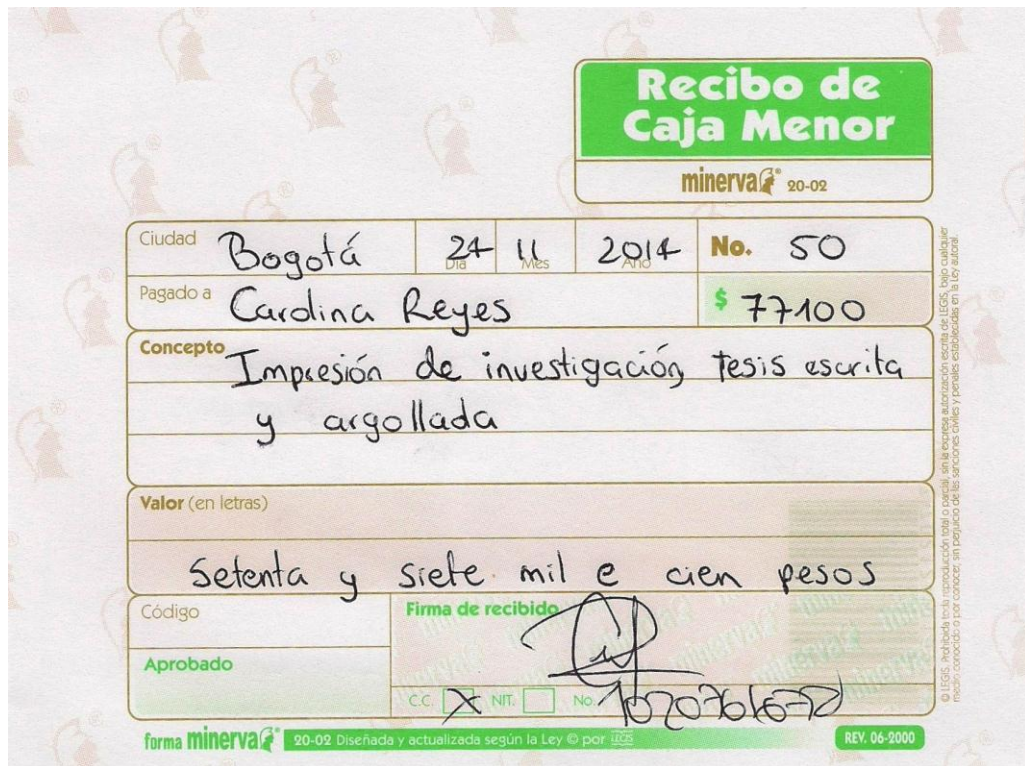 Recibo de
Caja Menor
minerva® 20-02
Ciudad Bogotá 24 11 2014 No. 50
Día Mes Año
Pagado a Carolina Reyes $ 77100
Concepto Impresión de investigación, tesis escrita
y argollada
Valor (en letras)
Setenta y siete mil e cien pesos
Código Firma de recibido
Aprobado
C.C. X NIT. No.
forma minerva® 20-02 Diseñada y actualizada según la Ley © por LEGIS REV. 06-2000
© LEGIS. Prohibida toda reproducción total o parcial, sin la expresa autorización escrita de LEGIS, bajo cualquier
medio conocido o por conocer, sin perjuicio de las sanciones civiles y penales establecidas en la Ley autoral.